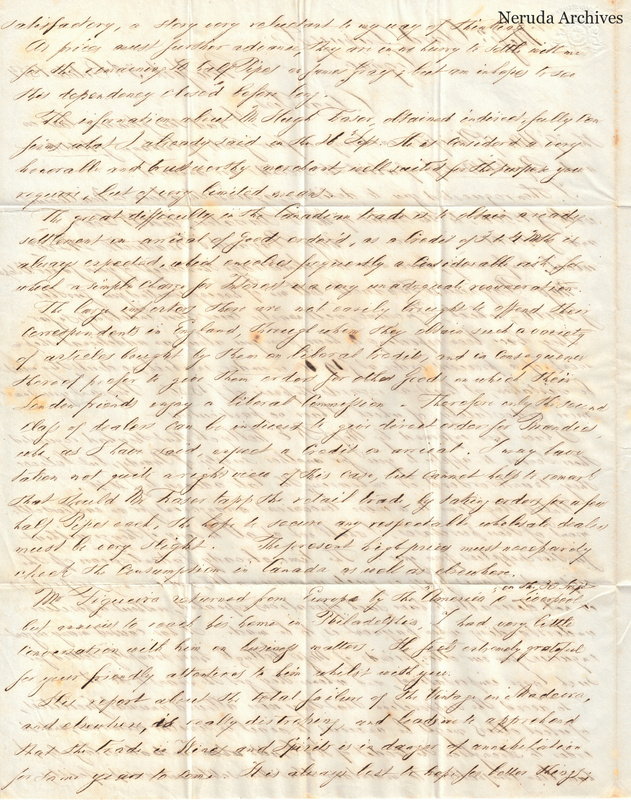 Neruda Archives
satisfactory, a story very reluctant to my way of thinking.
As prices must further advance they are in no hurry to settle with me
for the remaining half Pipes &
this dependency closed before long.
The information about Mr Hugh Fraser, obtained indirect, fully con
firms what I already said in the Sepr. He is considered a very
honorable and trustworthy merchant, well suited for the purpose you
require, but of very limited means.
The great difficulty in the Canadian trade is to obtain a ready
settlement on arrival of goods order'd, as a Credit of 3 to 4 Mths is
always expected, which involves frequently a considerable risk, for
which a simple charge for Interest is a very inadequate remuneration.
The large importers there are not easily brought to offend their
Correspondents in England, through whom they obtain such a variety
of articles bought by them on liberal Credits, and in consequence
thereof prefer to give them orders for other goods on which their
London friends enjoy a liberal Commission. Therefore only the second
Class of dealers can be induced to give direct orders for Brandies
who, as I have said, expect a Credit on arrival. I may have
taken not quite a right view of this case, but cannot help to remark
that should Mr Fraser the retail trade, by taking orders for a few
half Pipes each, the hope to secure any respectable wholesale dealer
must be very slight. The present high prices must necessarily
check the consumption in Canada as well as elsewhere.
Mr Figueira returned from Europe by the America to Liverpool
but anxious to reach his home in Philadelphia, I had very little
Conversation with him on business matters. He feels extremely grateful
for your friendly attentions to him whilst with you.
His report about the total failure of the Vintage in Madeira,
and elsewhere, is really distressing, and leads me to apprehend
that the trade in Wines and Spirits is in danger of annihilation
for some years to come. It is always best to hope for better things,